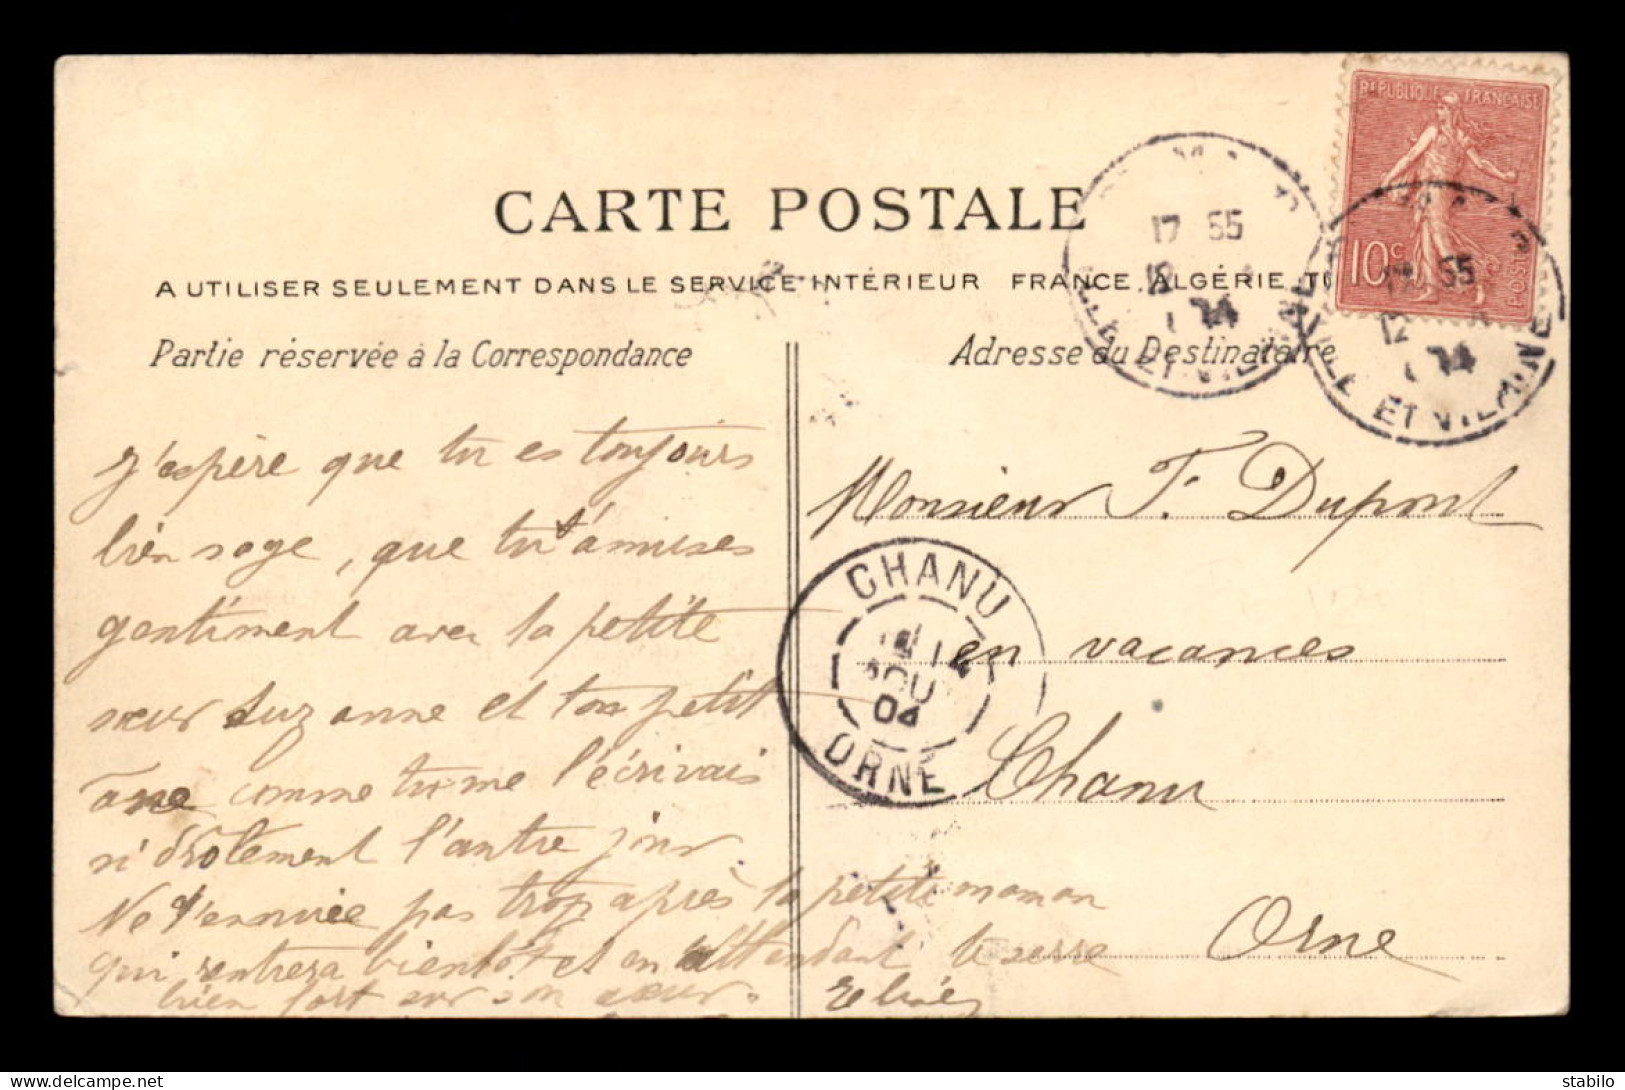 RÉPUBLIQUE FRANÇAISE
10c
POSTES
17 55
12
ILLE ET VILAINE
17 55
12
ILLE ET VILAINE
CARTE POSTALE
A UTILISER SEULEMENT DANS LE SERVICE INTÉRIEUR FRANCE, ALGÉRIE,
Partie réservée à la Correspondance
Adresse du Destinataire
J'espère que tu es toujours
bien sage, que tu t'amuses
gentiment avec la petite
sœur Suzanne et ton petit
âne comme tu me l'écrivais
si drôlement l'autre jour
Ne t'ennuie pas trop après la petite maman
qui rentrera bientôt et en attendant te serre
bien fort sur son cœur.
Monsieur F. Dupont
en vacances
Chanu
Orne
CHANU
AOUT
04
ORNE
stabilo